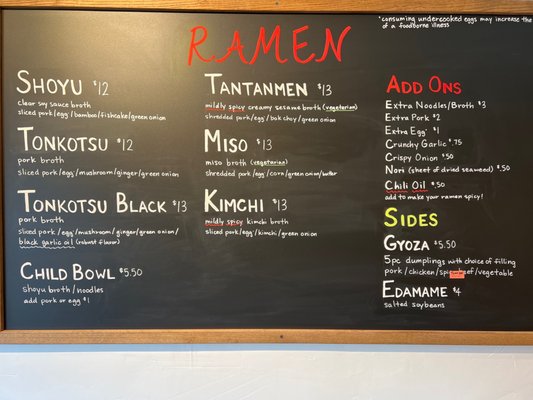 *consuming undercooked eggs may increase the
of a foodborne illness
RAMEN
SHOYU $12
clear soy sauce broth
sliced pork/egg*/bamboo/fishcake/green onion
TONKOTSU $12
pork broth
sliced pork/egg*/mushroom/ginger/green onion
TONKOTSU BLACK $13
pork broth
sliced pork/egg*/mushroom/ginger/green onion/
black garlic oil (robust flavor)
CHILD BOWL $5.50
shoyu broth/noodles
add pork or egg $1
TANTANMEN $13
mildly spicy creamy sesame broth (vegetarian)
shredded pork/egg*/bok choy/green onion
MISO $13
miso broth (vegetarian)
shredded pork/egg*/corn/green onion/butter
KIMCHI $13
mildly spicy kimchi broth
sliced pork/egg*/kimchi/green onion
ADD ONS
Extra Noodles/Broth $3
Extra Pork $2
Extra Egg* $1
Crunchy Garlic $.75
Crispy Onion $.50
Nori (sheet of dried seaweed) $.50
Chili Oil $.50
add to make your ramen spicy!
SIDES
GYOZA $5.50
5pc dumplings with choice of filling
pork/chicken/spicy beef/vegetable
EDAMAME $4
salted soybeans